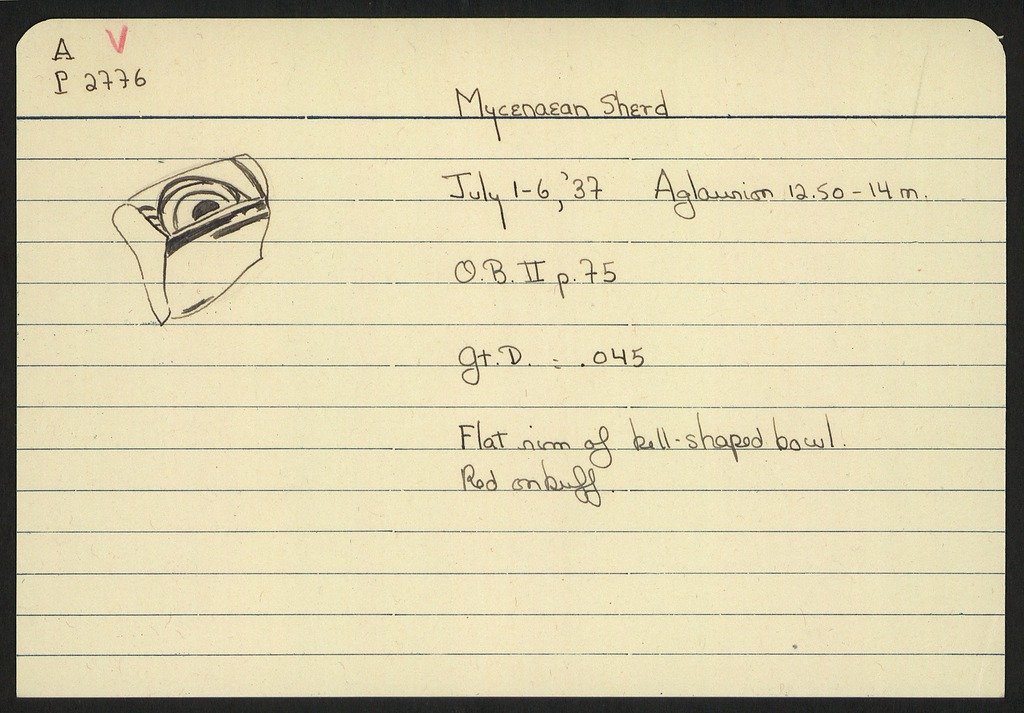 A V
P 2776
Mycenaean Sherd
July 1-6, '37 Aglaurion 12.50-14 m.
O.B. II p. 75
Gt. D. : .045
Flat rim of bell-shaped bowl.
Red on buff.